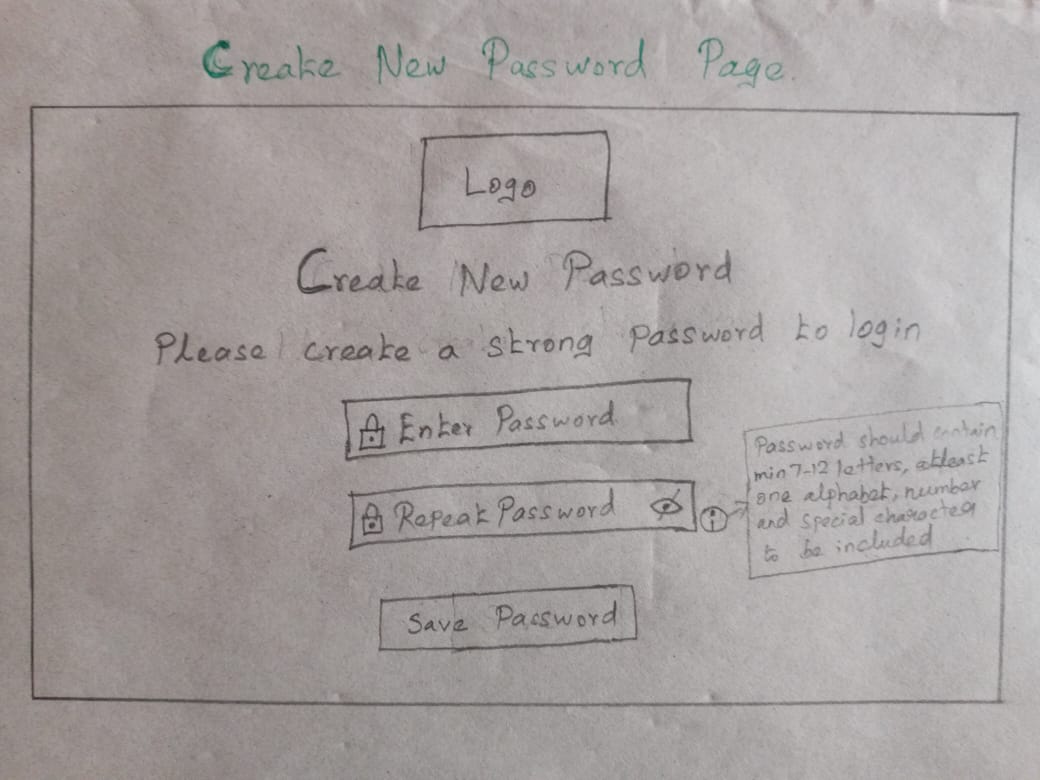 Create New Password Page.
Logo
Create New Password
Please create a strong password to login
Enter Password
Repeat Password
Password should contain
min 7-12 letters, atleast
one alphabet, number
and special character
to be included
Save Password